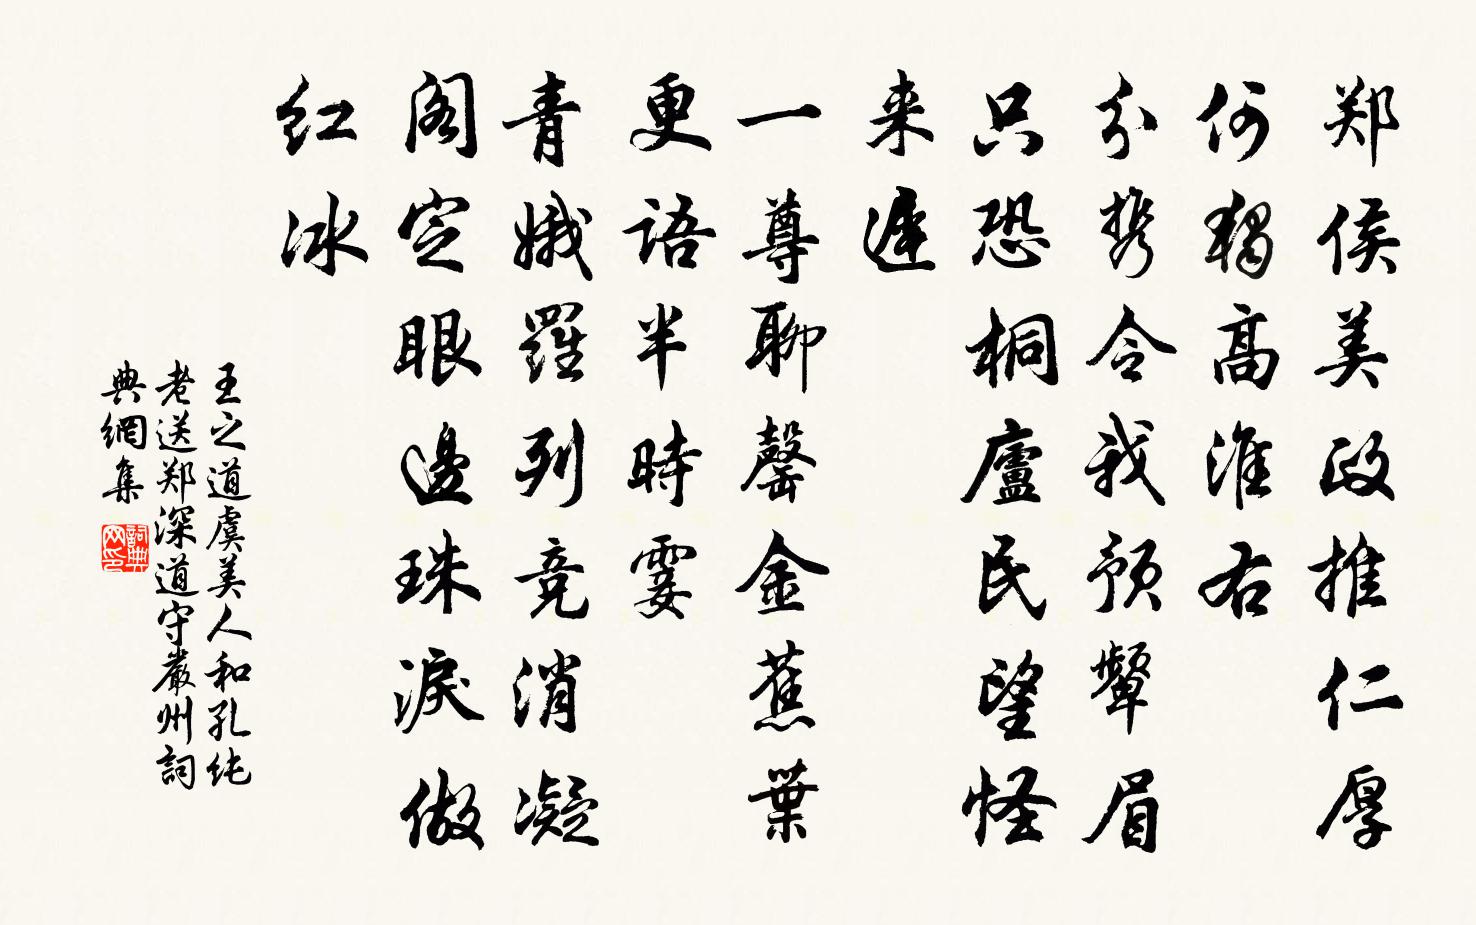 郑侯美政推仁厚
何獨高淮右
分携令我预颦眉
只恐桐廬民望怪
来遲
一尊聊罄金蕉葉
更語半時霎
青娥羅列竞消凝
阁定眼邊珠淚做
红冰
王之道虞美人和孔纯
老送郑深道守嚴州詞
典網集
詞典
网印